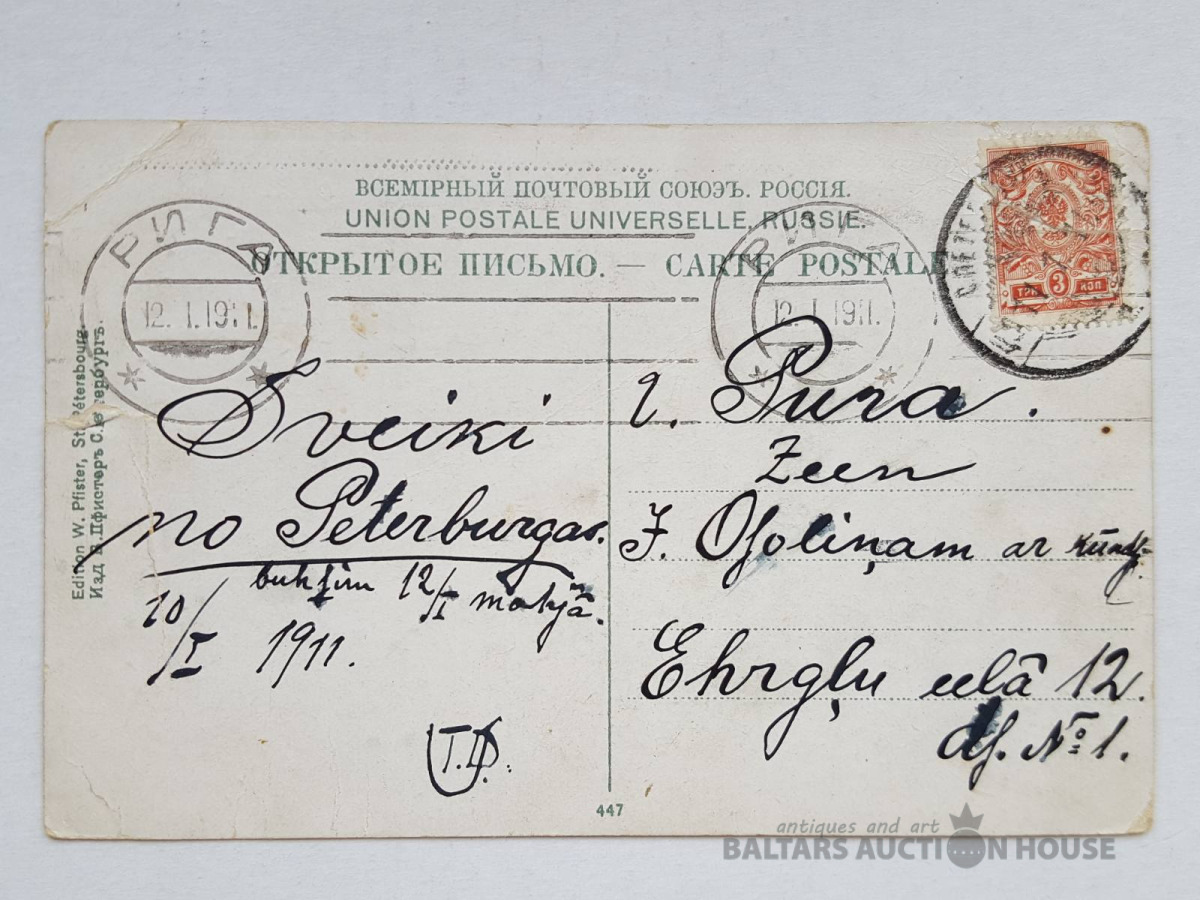 ВСЕМІРНЫЙ ПОЧТОВЫЙ СОЮЗЪ. РОССІЯ.
UNION POSTALE UNIVERSELLE, RUSSIE.
ОТКРЫТОЕ ПИСЬМО. — CARTE POSTALE
РИГА
12.1.1911.
РИГА
12.1.1911.
ТРИ 3 КОП
Edition W. Pfister, St. Pétersbourg.
Изд. В. Пфистеръ С. Петербургъ.
Sveiki
no Peterburgas.
buhſim 12/I mahjâ.
10/I 1911.
T.D.
Q. Pura.
Zeen
J. Oſoliņam ar kundſ.
Ehrgļu eelâ 12.
dſ. № 1.
447
antiques and art
BALTARS AUCTION HOUSE